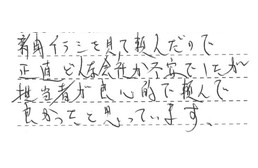 新聞チラシを見て頼んだので
正直どんな会社か不安でしたが
担当者が良心的で頼んで
良かったと思っています。